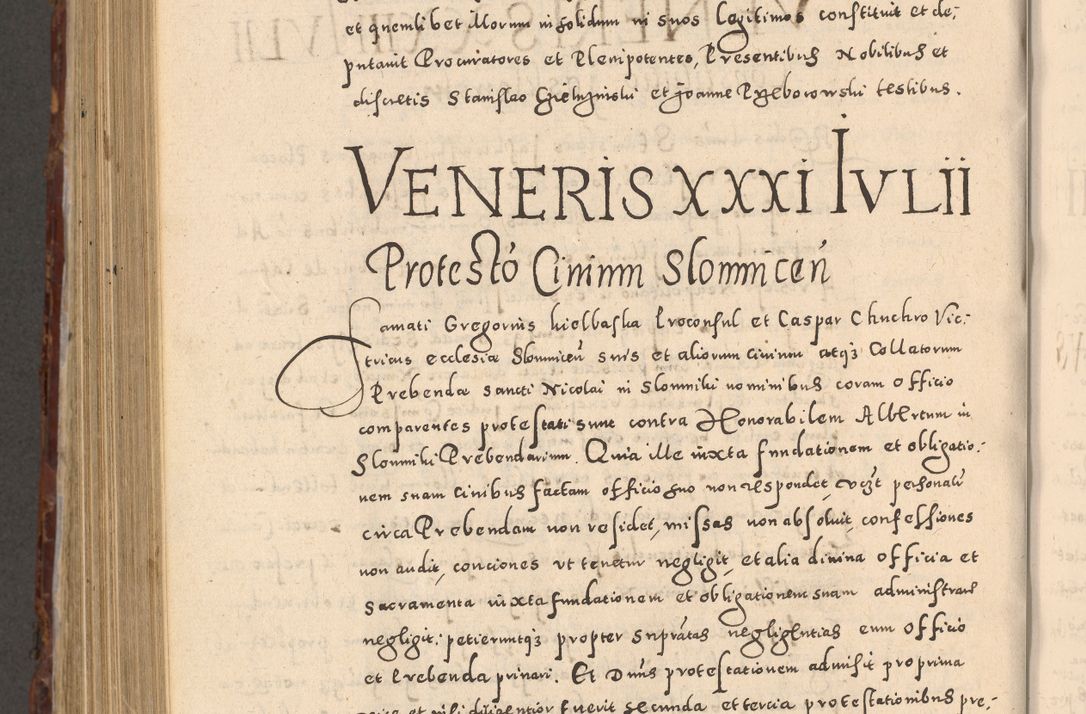 et quemlibet illorum in solidum in suos Legitimos constituit et de:
putauit Procuratores et Plenipotentes, Presentibus Nobilibus et
discretis Stanislao et Joanne Przeborowski testibus.
VENERIS XXXI IVLII
Protestó Ciuium Slomnicen̄
Famati Gregorius kielbaska Proconsul et Caspar Chuchro Vic:
tricus ecclesiæ Slomnicen̄ suis et aliorum ciuium atq3 Collatorum
Prebendæ sancti Nicolai in Slomniki nominibus coram officio
comparentes protestati sunt contra Honorabilem Albertum in
Slomniki Prebendarium. Quia ille iuxta fundationem et obligatio:
nem suam ciuibus factam officio suo non respondet, vczt personalr
circa Prebendam non residet, missas non absoluit, confessiones
non audit, conciones vt tenetur negligit, et alia diuina officia et
sacramenta iuxta fundationem et obligationem suam administrare
negligit: petieruntq3 propter suprātas negligentias eum officio
et Prebenda priuari. Et Dnūs protestationem admisit pro prima
et nisi diligentior fuerit secunda et tertia protestationibus pre: